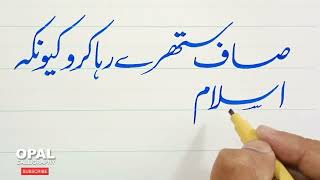 صاف ستھرے رہا کرو کیونکہ
اسلام
OPAL
CALLIGRAPHY
SUBSCRIBE